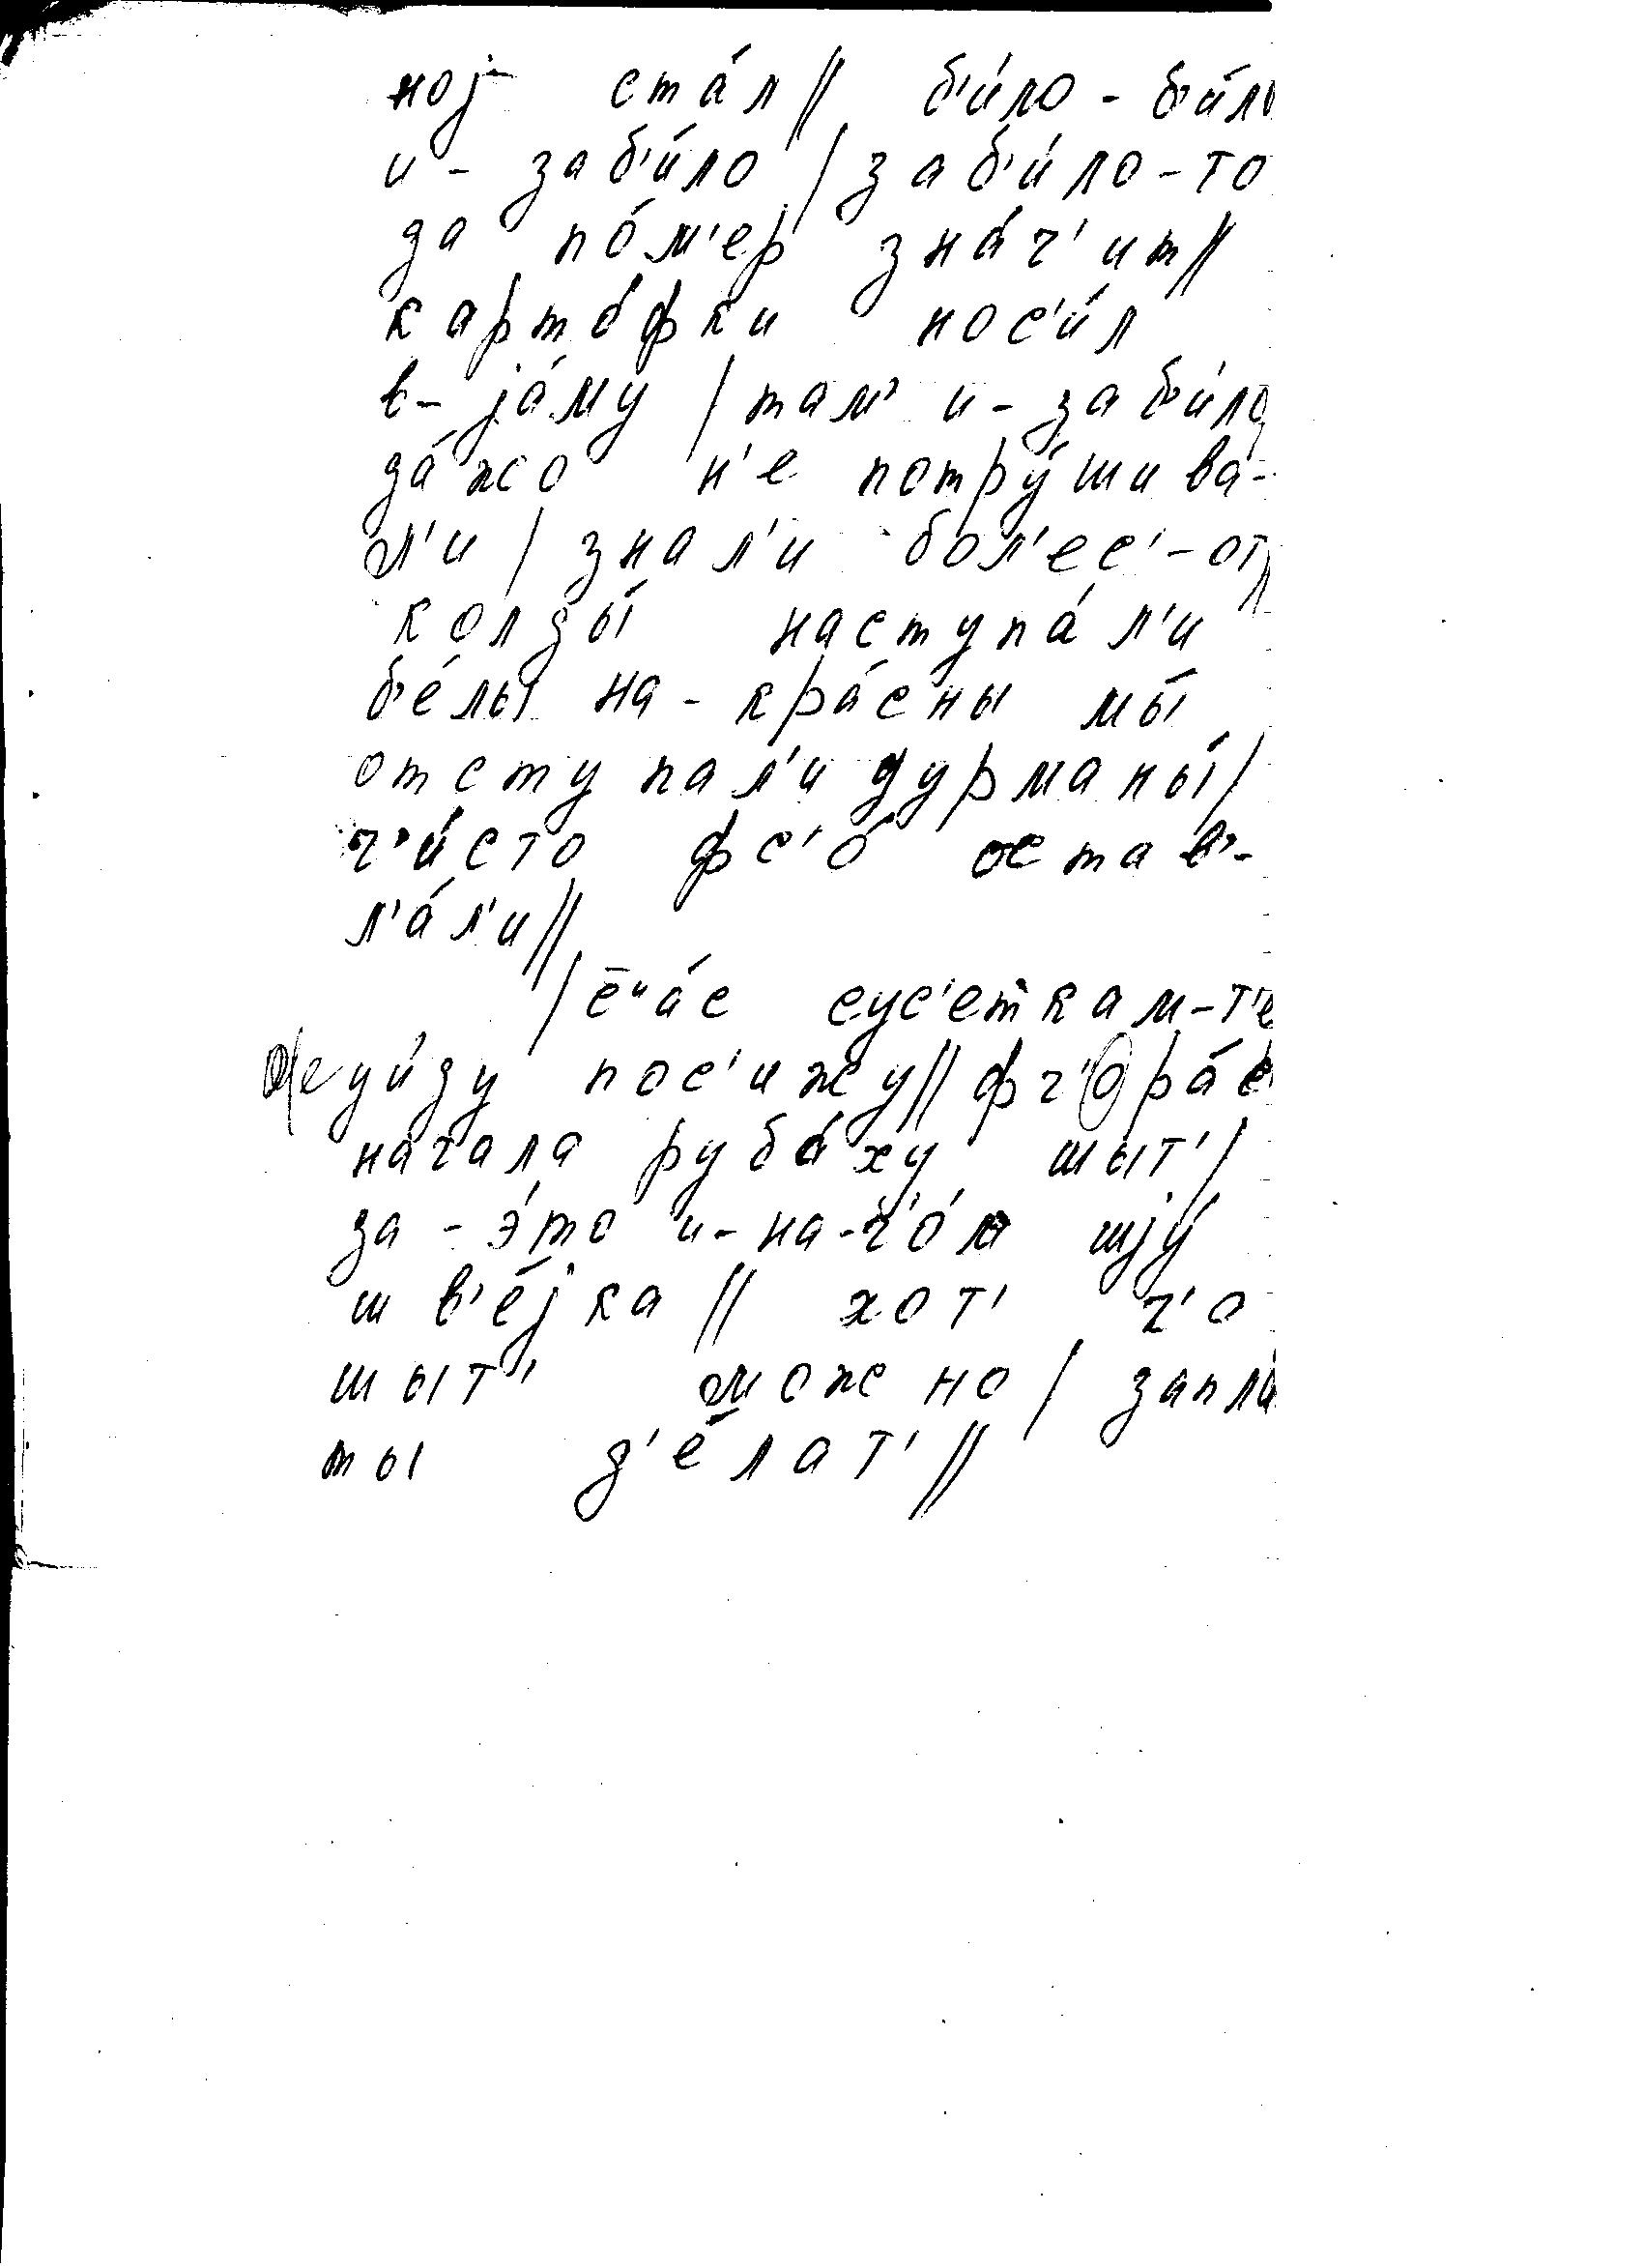 ноj стáл // б'и́ло - б'и́ло
и - заб'и́ло / заб'и́ло - то
да пóм'ер знáч'ит //
картóфки нос'и́л
в - jáму / там и - заб'и́ло
дáжо н'е потрýшива-
л'и / знал'и бол'ес' - от
колды́ наступáл'и
б'éлы на - крáсны мы́
отступал'и дурманы́ /
ч'и́сто фс'ó остав'-
л'áл'и //
/ счáс сус'еткам - т'е
уи́ду пос'ижу // фч'орáс'
начала рубáху шыт' /
за - э́то и - на - ч'óм шjý
шв'éjка // хот' ч'о
шыт' можно / запла
ты д'éлат' //